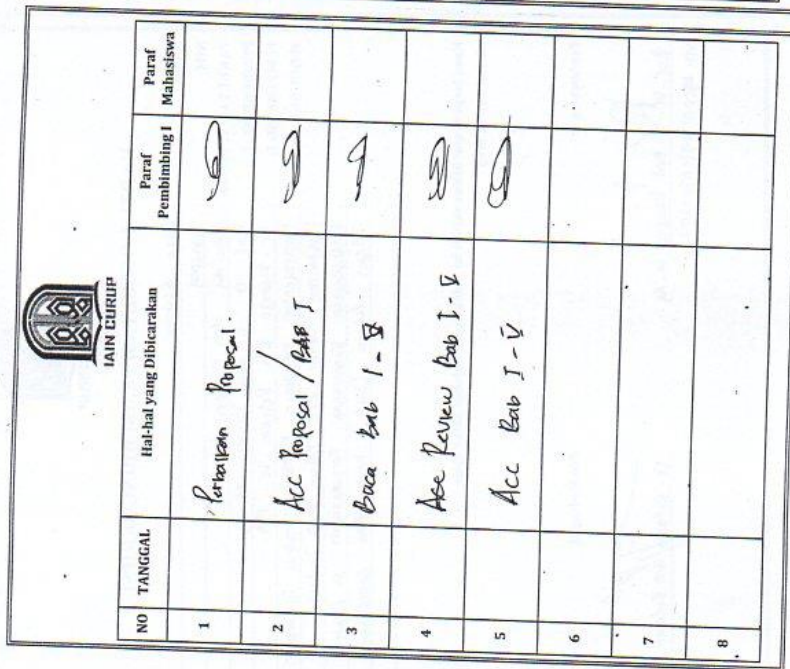 IAIN CURUP
NO TANGGAL Hal-hal yang Dibicarakan Paraf Pembimbing I Paraf Mahasiswa
1 Perbaikan Proposal.
2 ACC Proposal / BAB I
3 Baca Bab I - V
4 Acc Review Bab I - V
5 Acc Bab I - V
6
7
8